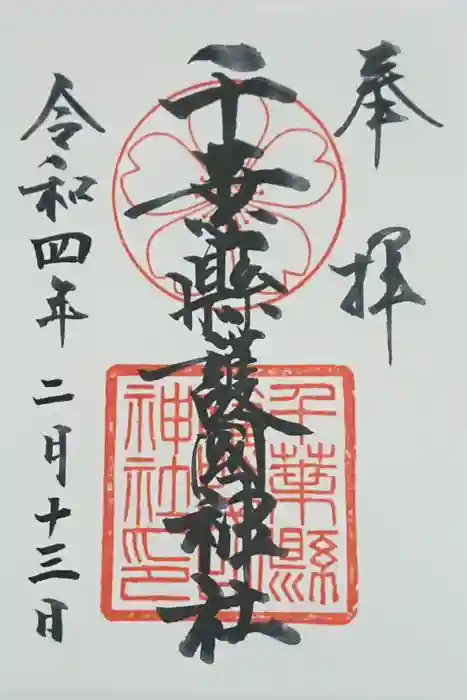 奉拝
千葉縣護國神社
千葉縣
護國
神社印
令和四年二月十三日